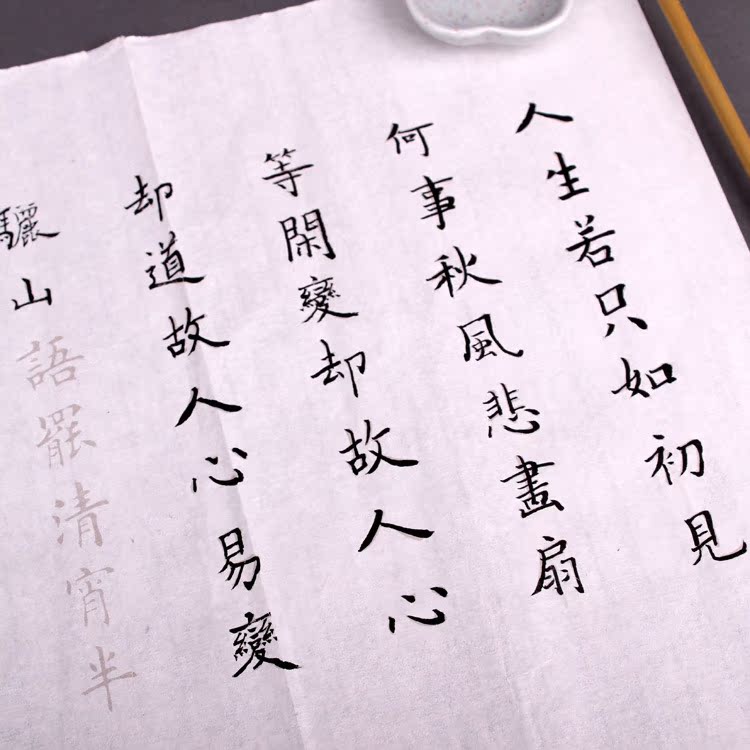 人生若只如初見
何事秋風悲畫扇
等閑變却故人心
却道故人心易變
驪山語罷清宵半